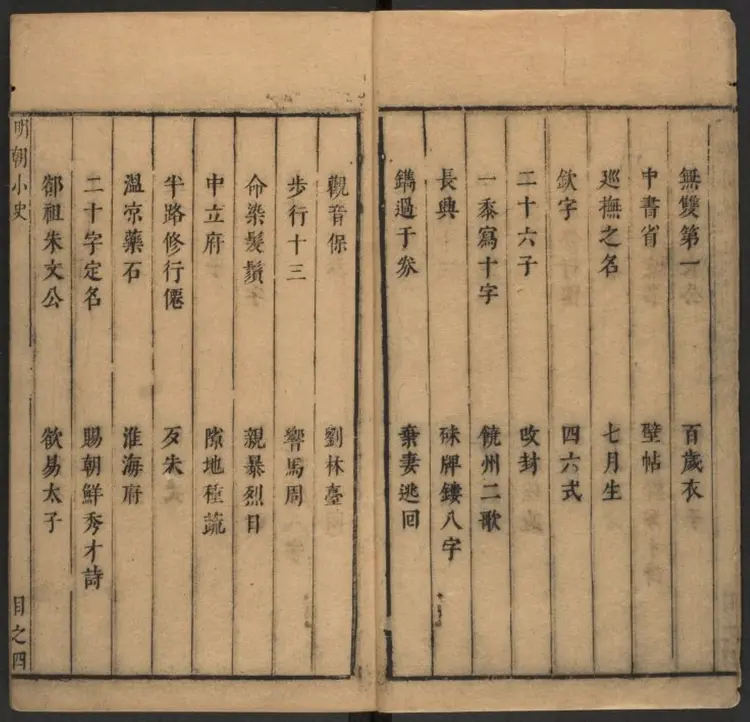 無雙第一　百歲衣
中書省　壁帖
廵撫之名　七月生
欽字　四六式
二十六子　改封
一黍寫十字　饒州二歌
長典　硃牌鏤八字
鐫過于券　棄妻逃回
觀音保　劉林臺
步行十三　響馬周
命染髮鬚　親暴烈日
中立府　隙地種蔬
半路修行僊　歹朱
溫凉藥石　淮海府
二十字定名　賜朝鮮秀才詩
郤祖朱文公　欲易太子
明朝小史　目之四